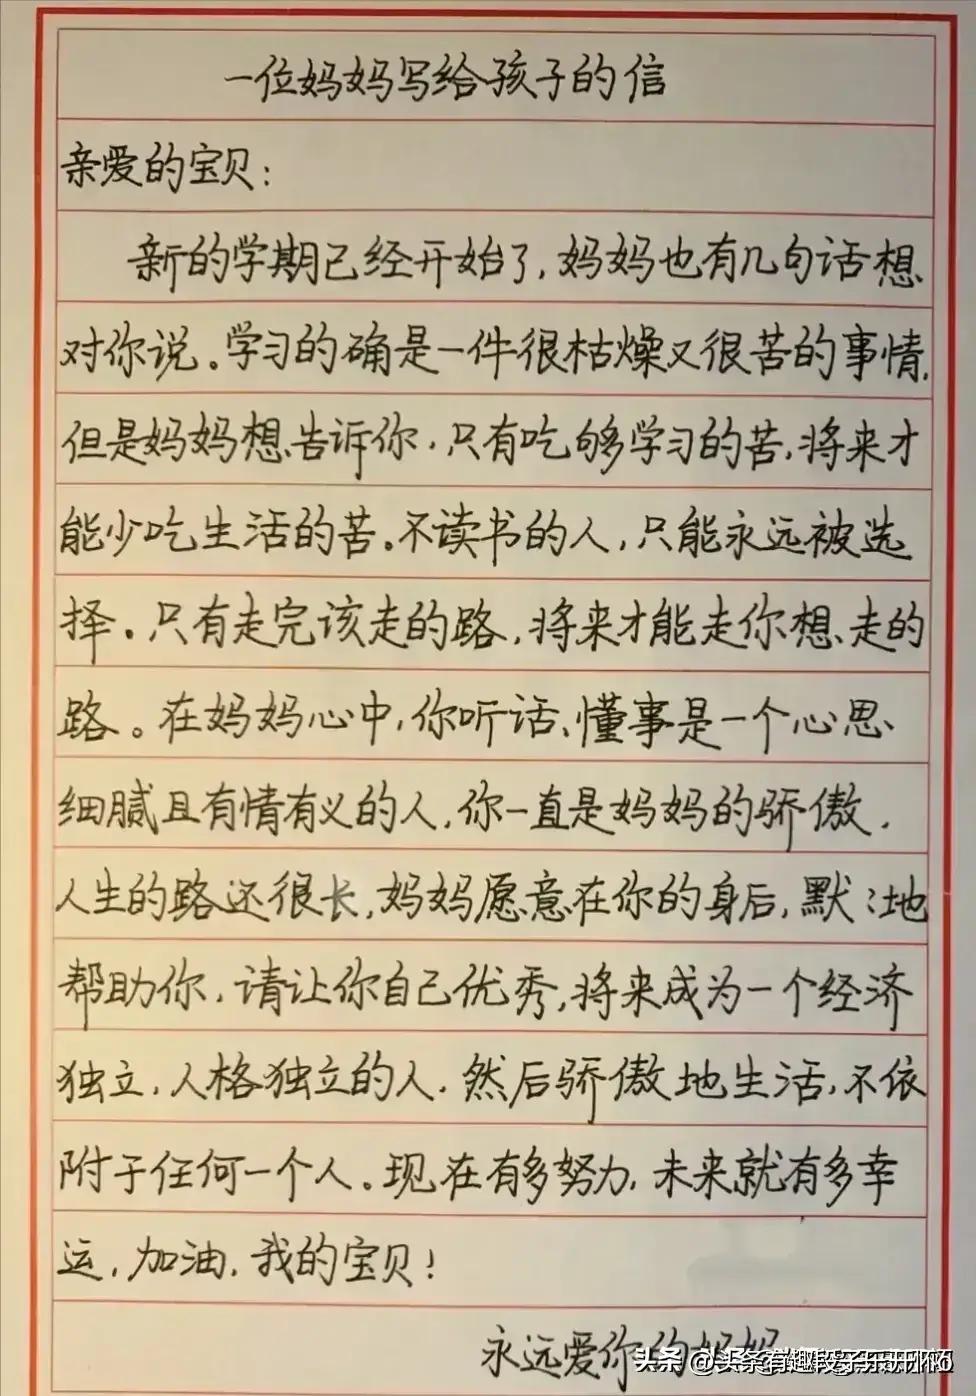 一位妈妈写给孩子的信
亲爱的宝贝:
新的学期已经开始了,妈妈也有几句话想
对你说。学习的确是一件很枯燥又很苦的事情,
但是妈妈想告诉你,只有吃够学习的苦,将来才
能少吃生活的苦。不读书的人,只能永远被选
择。只有走完该走的路,将来才能走你想走的
路。在妈妈心中,你听话、懂事是一个心思
细腻且有情有义的人,你一直是妈妈的骄傲,
人生的路还很长,妈妈愿意在你的身后,默:地
帮助你,请让你自己优秀,将来成为一个经济
独立,人格独立的人,然后骄傲地生活,不依
附于任何一个人。现在有多努力,未来就有多幸
运,加油,我的宝贝!
永远爱你的妈妈
头条 @头条有趣段子